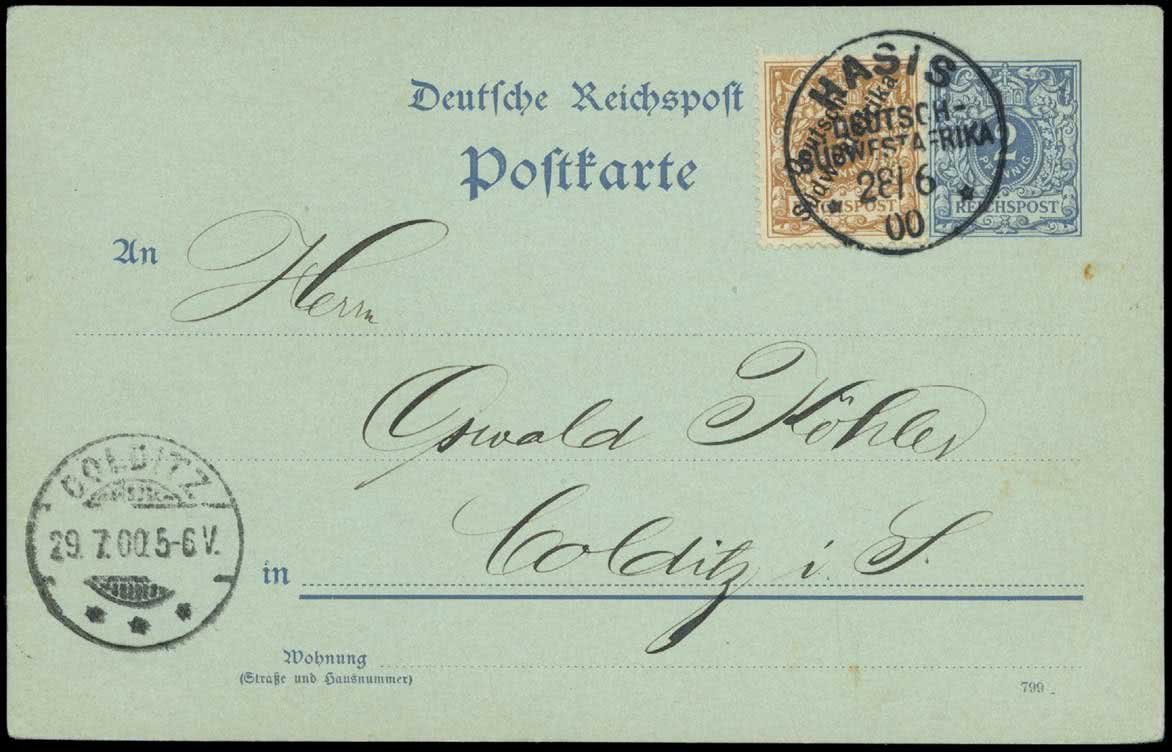 Deutsche Reichspost
Postkarte
Deutsch-
Südwestafrika
REICHSPOST
HASIS
DEUTSCH-
SÜDWESTAFRIKA
28/6
00
2
PFENNIG
REICHSPOST
An Herrn
Oswald Köhler
in Colditz i S.
COLDITZ
29. 7. 00. 5-6 V.
Wohnung
(Straße und Hausnummer)
799